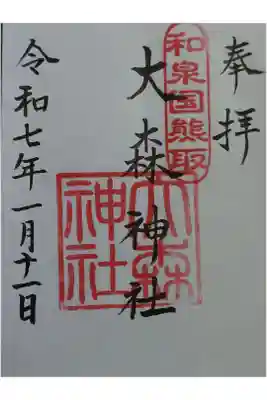 奉拝
和泉国熊取
大森神社
大森神社
令和七年一月十一日